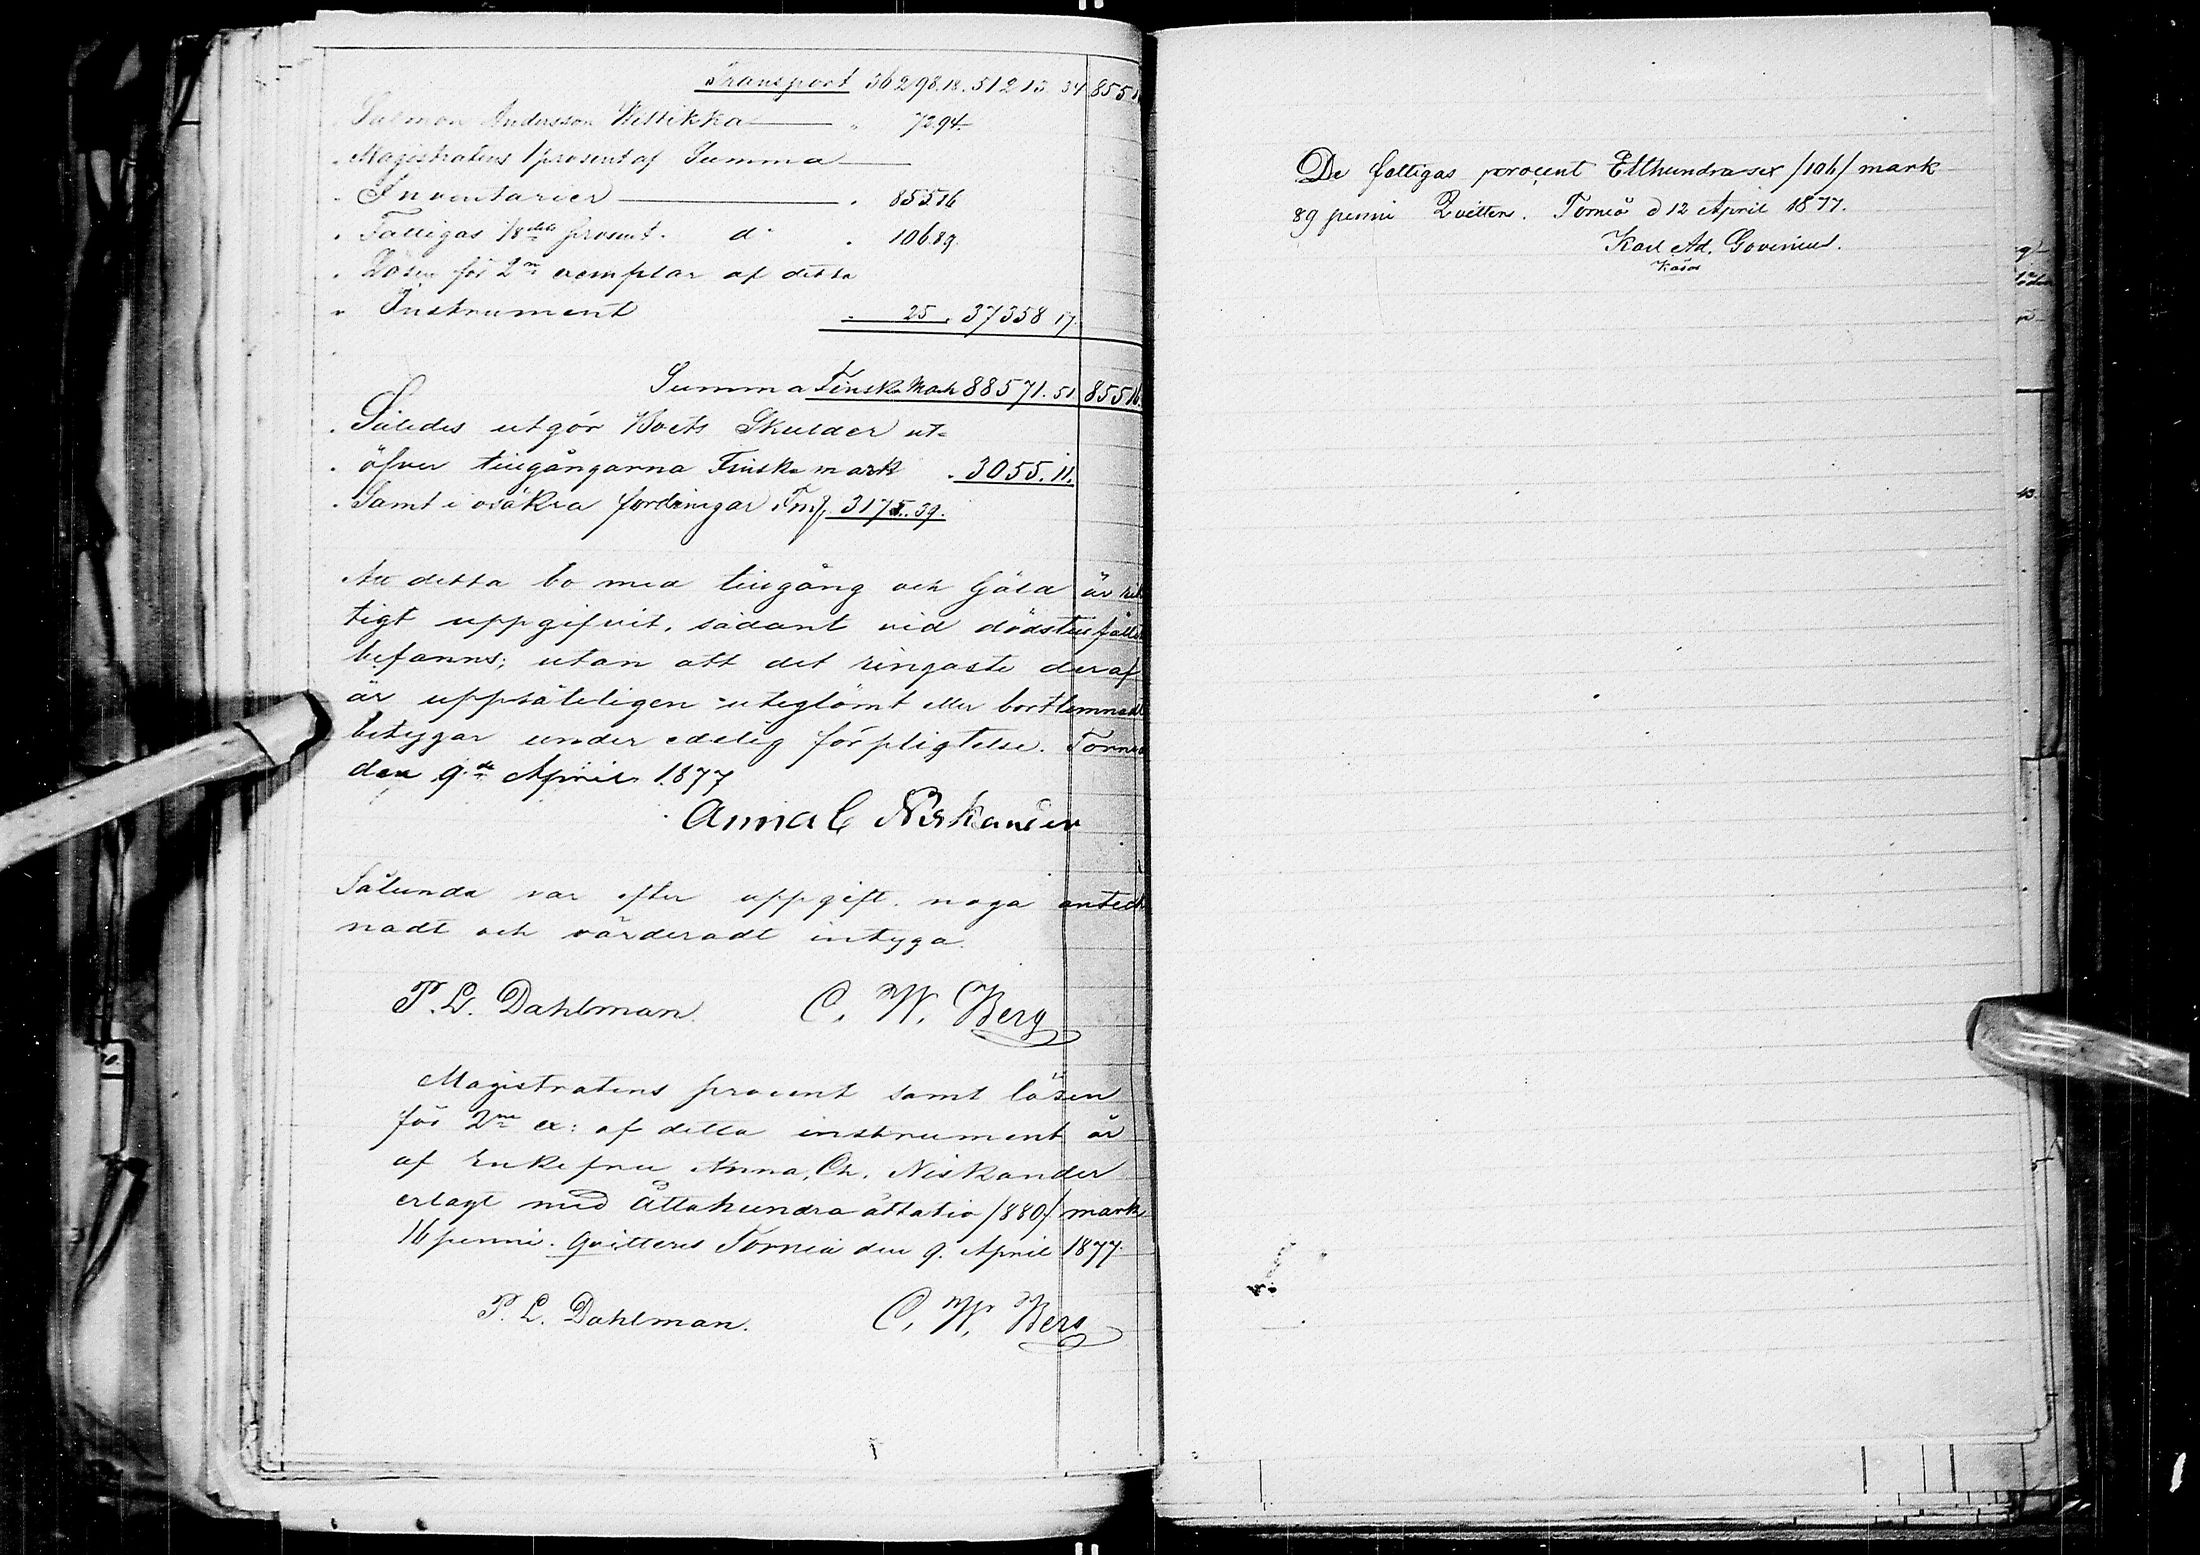 Transport 36298.18. 51213. 34 855 1
Salmon Andersson Kittikka " 72.94.
" Magistratens 1 prosent af Summa
" Inventarier " 855.16
" Fattigas 1/8dels prosent. do " 106.89.
" Lösen för 2ne exemplar af detta
" Instrument " 25 " 37358 17.
Summa Finska Mark 88571. 51. 855 16.
Således utgör Boets Skulder ut-
öfver tillgångarna Finska mark " 3055. 11.
Samt i osäkra fordringar Fmf 3175. 39.
Att detta bo med tillgång och Gäld är rik
tigt uppgifvit, sådant vid dödstillfället
befanns; utan att det ringaste deraf
är uppsåteligen uteglömt eller bortlemnadt
betygar under edelig förpligtelse. Torneå
den 9de April 1877
Anna C Niskander
Sålunda var efter uppgift noga anteck
nadt och värderadt intyga.
P. L. Dahlman. C. W. Berg
Magistratens procent samt lösen
för 2ne ex: af detta instrument är
af Enkefru Anna, Ch. Niskander
erlagt med Åttahundra åttatio /880/ mark
16 penni. Qvitteres Torneå den 9. April 1877.
P. L. Dahlman. C. W. Berg
De fattigas procent Etthundrasex /106/ mark
89 penni Qvitters. Torneå d 12 April 1877.
Karl Ad. Govenius.